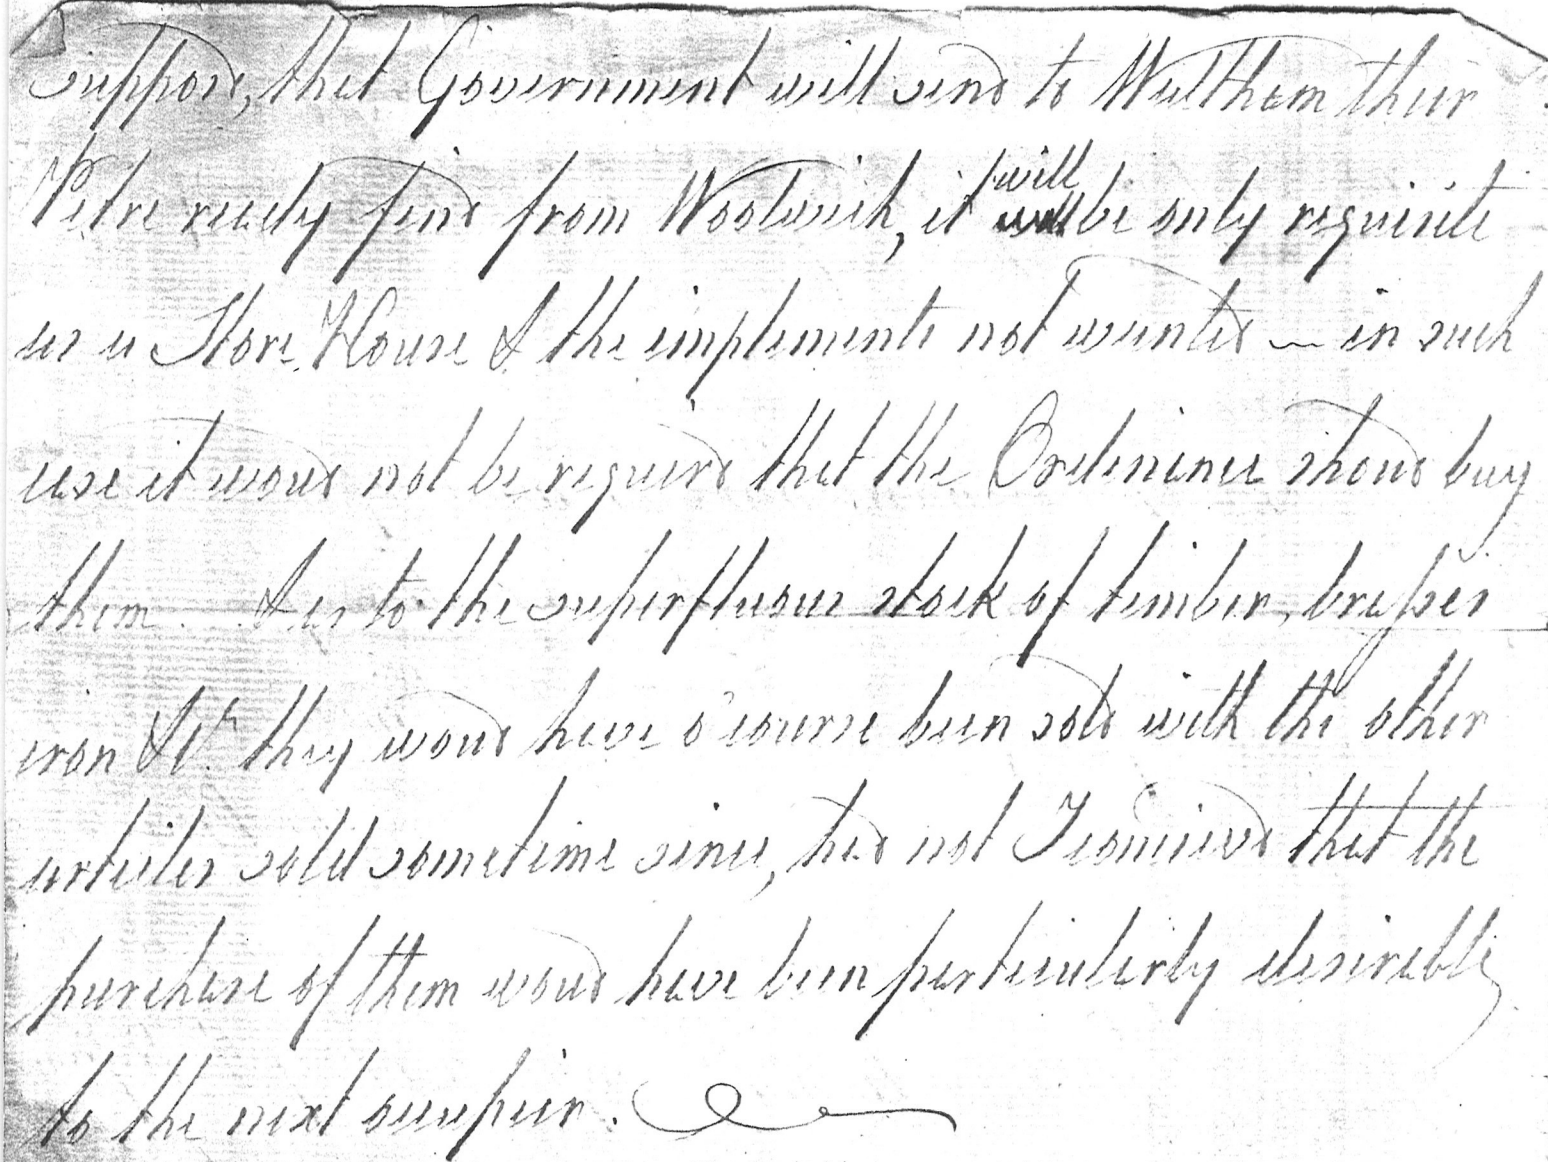 suppose, that Government will send to Waltham their
Petre ready fin'd from Woolwich, it will will be only requisite
as a Store House & the implements not wanted — in such
case it wou'd not be requir'd that the Ordnance shou'd buy
them. — As to the superfluous stock of timber, brasses
iron &c. they wou'd have o'course been sold with the other
articles sold sometime since, had not I conceiv'd that the
purchase of them wou'd have been particularly desirable
to the next occupier.